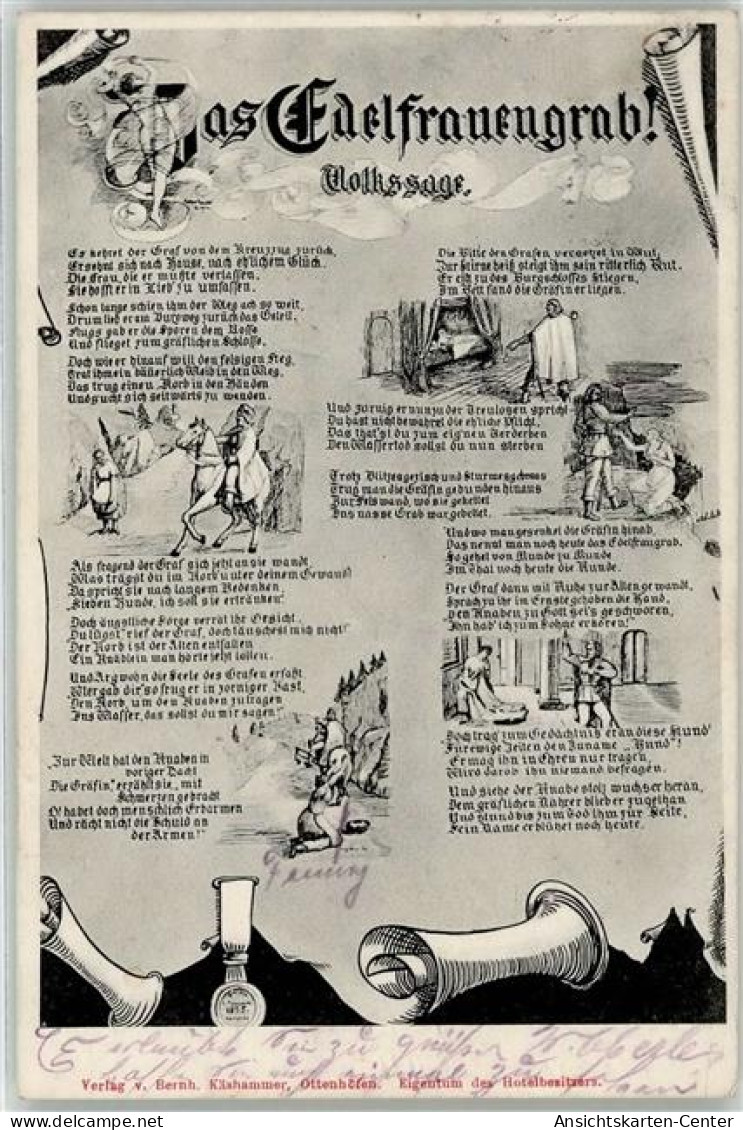 Das Edelfrauengrab!
Volkssage.
Es kehret der Graf von dem Kreuzzug zurück,
Er sehnt sich nach Hause, nach ehlichem Glück.
Die Frau, die er mußte verlassen,
Sie hofft er in Lieb' zu umfassen.
Schon lange schien ihm der Weg ach so weit,
Drum ließ er am Burgweg zurück das Geleit.
Flugs gab er die Sporen dem Rosse
Und flieget zum gräflichen Schlosse.
Doch wie er hinauf will den felsigen Steg,
Traf ihm ein bäuerlich Weib in den Weg,
Das trug einen Korb in den Händen
Und sucht sich seitwärts zu wenden.
Als fragend der Graf sich jetzt an sie wandt
Was trägst du im Korb unter deinem Gewand?
Da spricht sie nach langem Bedenken
"Sieben Hunde, ich soll sie ertränken"
Doch ängstliche Sorge verrät ihr Gesicht.
Du lügst" rief der Graf, doch täuschest mich nicht!
Der Korb ist der Alten entfallen
Ein Knäblein man hörte jetzt lallen.
Und Argwohn die Seele des Grafen erfaßt
"Wer gab dir's" so frug er in zorniger Hast,
Den Korb, um den Knaben zu tragen
Ins Wasser, das sollst du mir sagen!"
"Zur Welt hat den Knaben in
voriger Nacht
Die Gräfin," erzählt sie, "mit
Schmerzen gebracht
O! habet doch menschlich Erbarmen
Und rächt nicht die Schuld an
der Armen!"
Die Bitte den Grafen versetzet in Wut,
Zur Stirne heiß steigt ihm sein ritterlich Blut.
Er eilt zu des Burgschlosses Stiegen,
Im Bett fand die Gräfin er liegen.
Und zornig er nun zu der Treulosen spricht
Du hast nicht bewahret die ehliche Pflicht.
Das that'st du zum eig'nen Verderben
Den Wassertod sollst du nun sterben
Trotz Blitzesgezisch und Sturmesgebraus
Trug man die Gräfin gebunden hinaus
Zur Felswand, wo sie gekettet
Ins nasse Grab war gebettet.
Und wo man gesenket die Gräfin hinab,
Das nennt man noch heute das Edelfraugrab.
So gehet von Munde zu Munde
Im Thal noch heute die Kunde.
Der Graf dann mit Ruhe zur Alten gewandt,
Sprach zu ihr im Ernste gehoben die Hand,
Den Knaben zu Gott sei's geschworen,
"Ihn hab' ich zum Sohne erkoren!"
Doch trag zum Gedächtnis er an diese Stund'
Für ewige Zeiten den Zuname "Hund"!
Er mag ihn in Ehren nur trag'n,
Wird darob ihn niemand befragen.
Und siehe der Knabe stolz wuchs er heran,
Dem gräflichen Nährer blieb er zugethan
Und stund bis zum Tod ihm zur Seite,
Sein Name erblühet noch heute.
Verlag v. Bernh. Käshammer, Ottenhöfen. Eigentum des Hotelbesitzers.
Ansichtskarten-Center